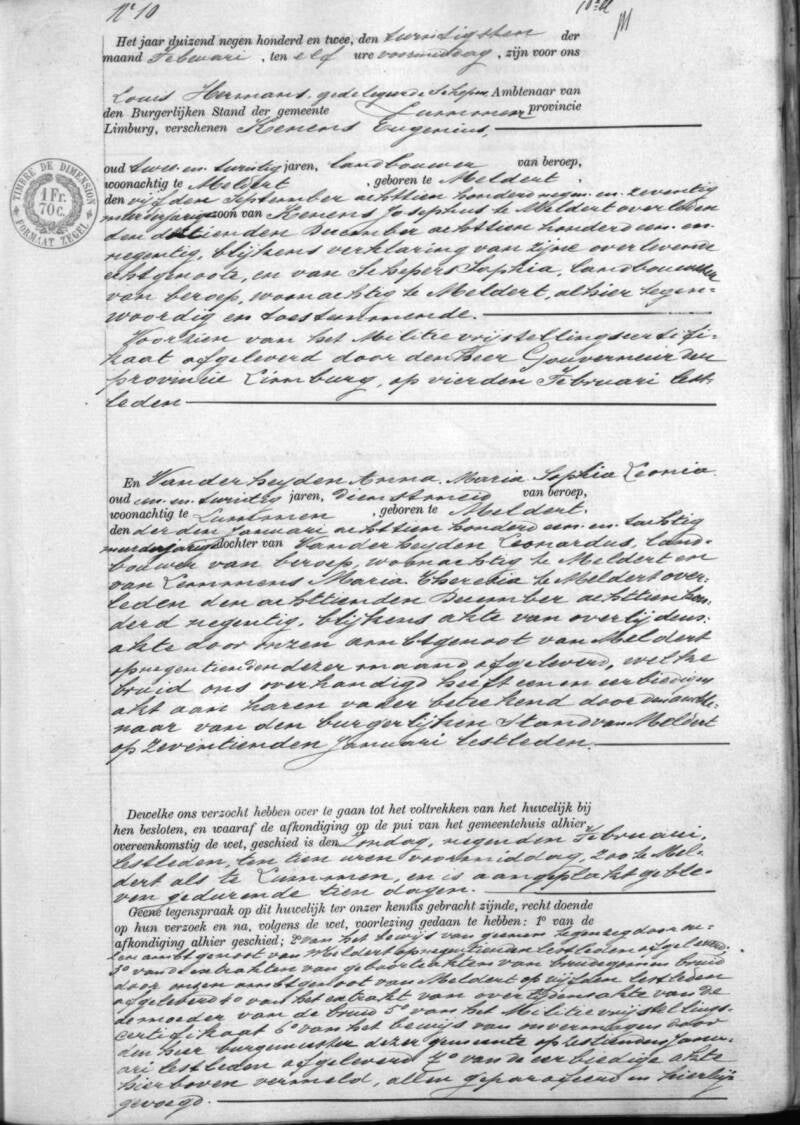 N° 10
Het jaar duizend negen honderd en twee, den twintigsten der
maand Februari, ten elf ure voormiddag, zijn voor ons
Louis Hermans, gedelegeerde Schepen Ambtenaar van
den Burgerlijken Stand der gemeente Lummen provincie
Limburg, verschenen Kenens Eugenius,
oud twee en twintig jaren, landbouwer van beroep,
woonachtig te Meldert, geboren te Meldert.
den vijfden September achttien honderd negen en zeventig
minderjarige zoon van Kenens Josephus te Meldert overleden
den achttienden December achttien honderd een en
negentig, blijkens verklaring van zijne overlevende
echtgenoote, en van Schepers Sophia, landbouwster
van beroep, woonachtig te Meldert, alhier tegen-
woordig en toestemmende.
Voorzien van het Militievrijstellingscertifi-
kaat afgeleverd door den heer Gouverneur der
provincie Limburg, op vierden Februari lest-
leden
TIMBRE DE DIMENSION
1 Fr.
70 c.
FORMAAT ZEGEL
En Vanderheyden Anna Maria Sophia Leonia
oud een en twintig jaren, dienstmeid van beroep,
woonachtig te Lummen, geboren te Meldert.
den derden Januari achttien honderd een en tachtig
meerderjarige dochter van Vanderheyden Leonardus, land-
bouwer van beroep, woonachtig te Meldert en
van Lemmens Maria Theresia te Meldert over-
leden den achttienden December achttien hon-
derd negentig, blijkens akte van overlijdens
akte door onzen ambtgenoot van Meldert
op negentienden dezer maand afgeleverd, welke
bruid ons overhandigd heeft eenen eerbiedigen
akt aan haren vader beteekend door den ambte-
naar van den burgerlijken Stand van Meldert
op zeventienden Januari lestleden.
Dewelke ons verzocht hebben over te gaan tot het voltrekken van het huwelijk bij
hen besloten, en waaraf de afkondiging op de pui van het gemeentehuis alhier,
overeenkomstig de wet, geschied is den Zondag, negenden Februari,
lestleden, ten tien uren voormiddag, zoo te Mel-
dert als te Lummen, en is aangeplakt geble-
ven gedurende tien dagen.
Geene tegenspraak op dit huwelijk ter onzer kennis gebracht zijnde, recht doende
op hun verzoek en na, volgens de wet, voorlezing gedaan te hebben: 1° van de
afkondiging alhier geschied; 2° van het bewijs van geenen tegenzeg door on-
zen ambtgenoot van Meldert op negentienden lestleden afgeleverd
3° van de extrakten van geboorteakten van bruidegom en bruid
door onzen ambtgenoot van Meldert op vijfden lestleden
afgeleverd 4° van het extrakt van overlijdensakte van de
moeder van de bruid 5° van het Militievrijstellings-
certifikaat 6° van het bewijs van onvermogen door
den heer burgemeester dezer gemeente op Janu-
ari lestleden afgeleverd 7° van de eerbiedige akte
hierboven vermeld, allen geparafeerd en hierbij
gevoegd.